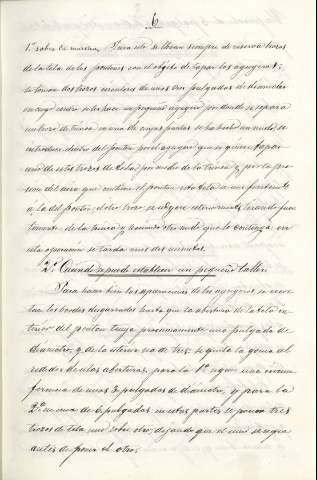 6
1.º sobre la marcha. Para esto se llevan siempre de reserva trozos
de la tela de los pontones con el objeto de tapar los agujeros;
se toman dos trozos circulares de unas tres pulgadas de diametro
en cuyo centro se les hace un pequeño agujero por donde se separa
un trozo de trenza en una de cuyas puntas se ha hecho un nudo; se
introduce dentro del ponton por el agujero que se quiere tapar
uno de estos trozos de tela por medio de la trenza y por la pre-
sion del aire que contiene el ponton esta tela se une
a la del ponton; el otro trozo se exteriormente tirando fuer-
temente de la trenza y haciendo otro nudo que lo contenga en
esta operacion se tarda unos dos minutos.
2.º Cuando se puede establecer un pequeño taller.
Para hacer bien las reparaciones de los agujeros se
los bordes desgarrados hasta que la abertura de la tela in-
terior del ponton tenga proximamente una pulgada de
diametro, y de la esterna sea de tres; se quita la goma al
rededor de las aberturas, para la 1.ª segun una circun-
ferencia de unas 3 pulgadas de diametro, y para la
2.ª en una de 6 pulgadas en estas partes se ponen tres
trozos de tela uno sobre otro, dejando que el uno se seque
antes de poner el otro.